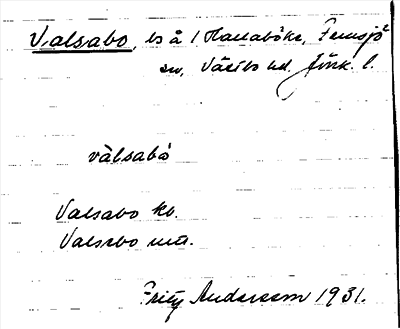 Valsabo, bs å 1 Hallaböke, Femsjö
sn, Västbo hd. Jönk. l.
vàlsabó
Valsabo kv.
Valsabo ma.
Fritz Andersson 1931.